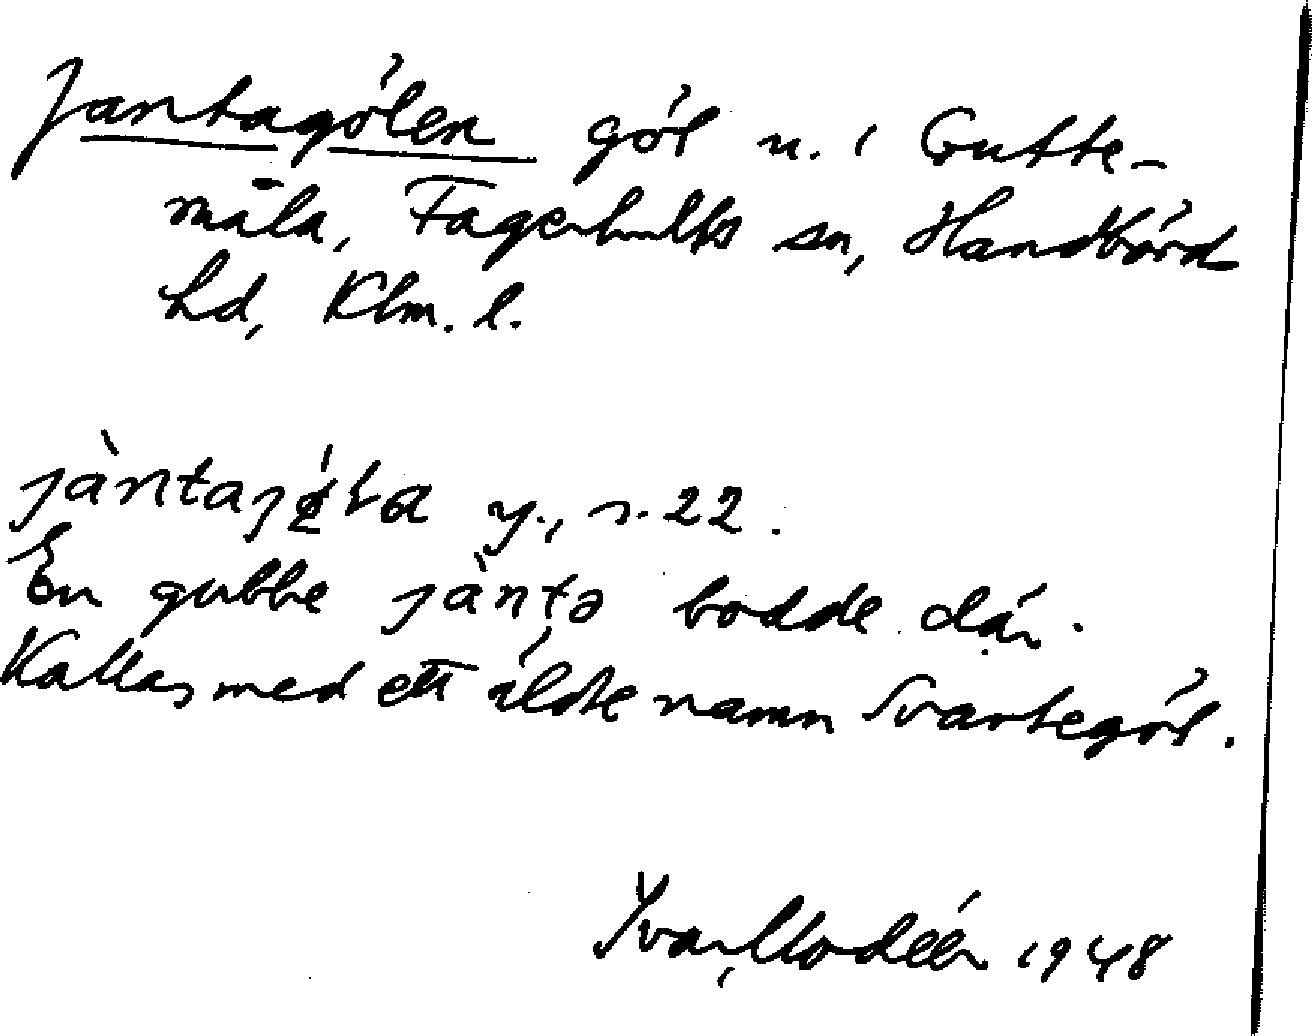 Jantagölen göl n. i Gutte-
måla, Fagerhults sn, Handbörd
hd, Klm. l.
y., r. 22.
En gubbe jàntə bodde där.
Kallas med ett äldre namn Svartegöl.
Ivar Modéer 1948